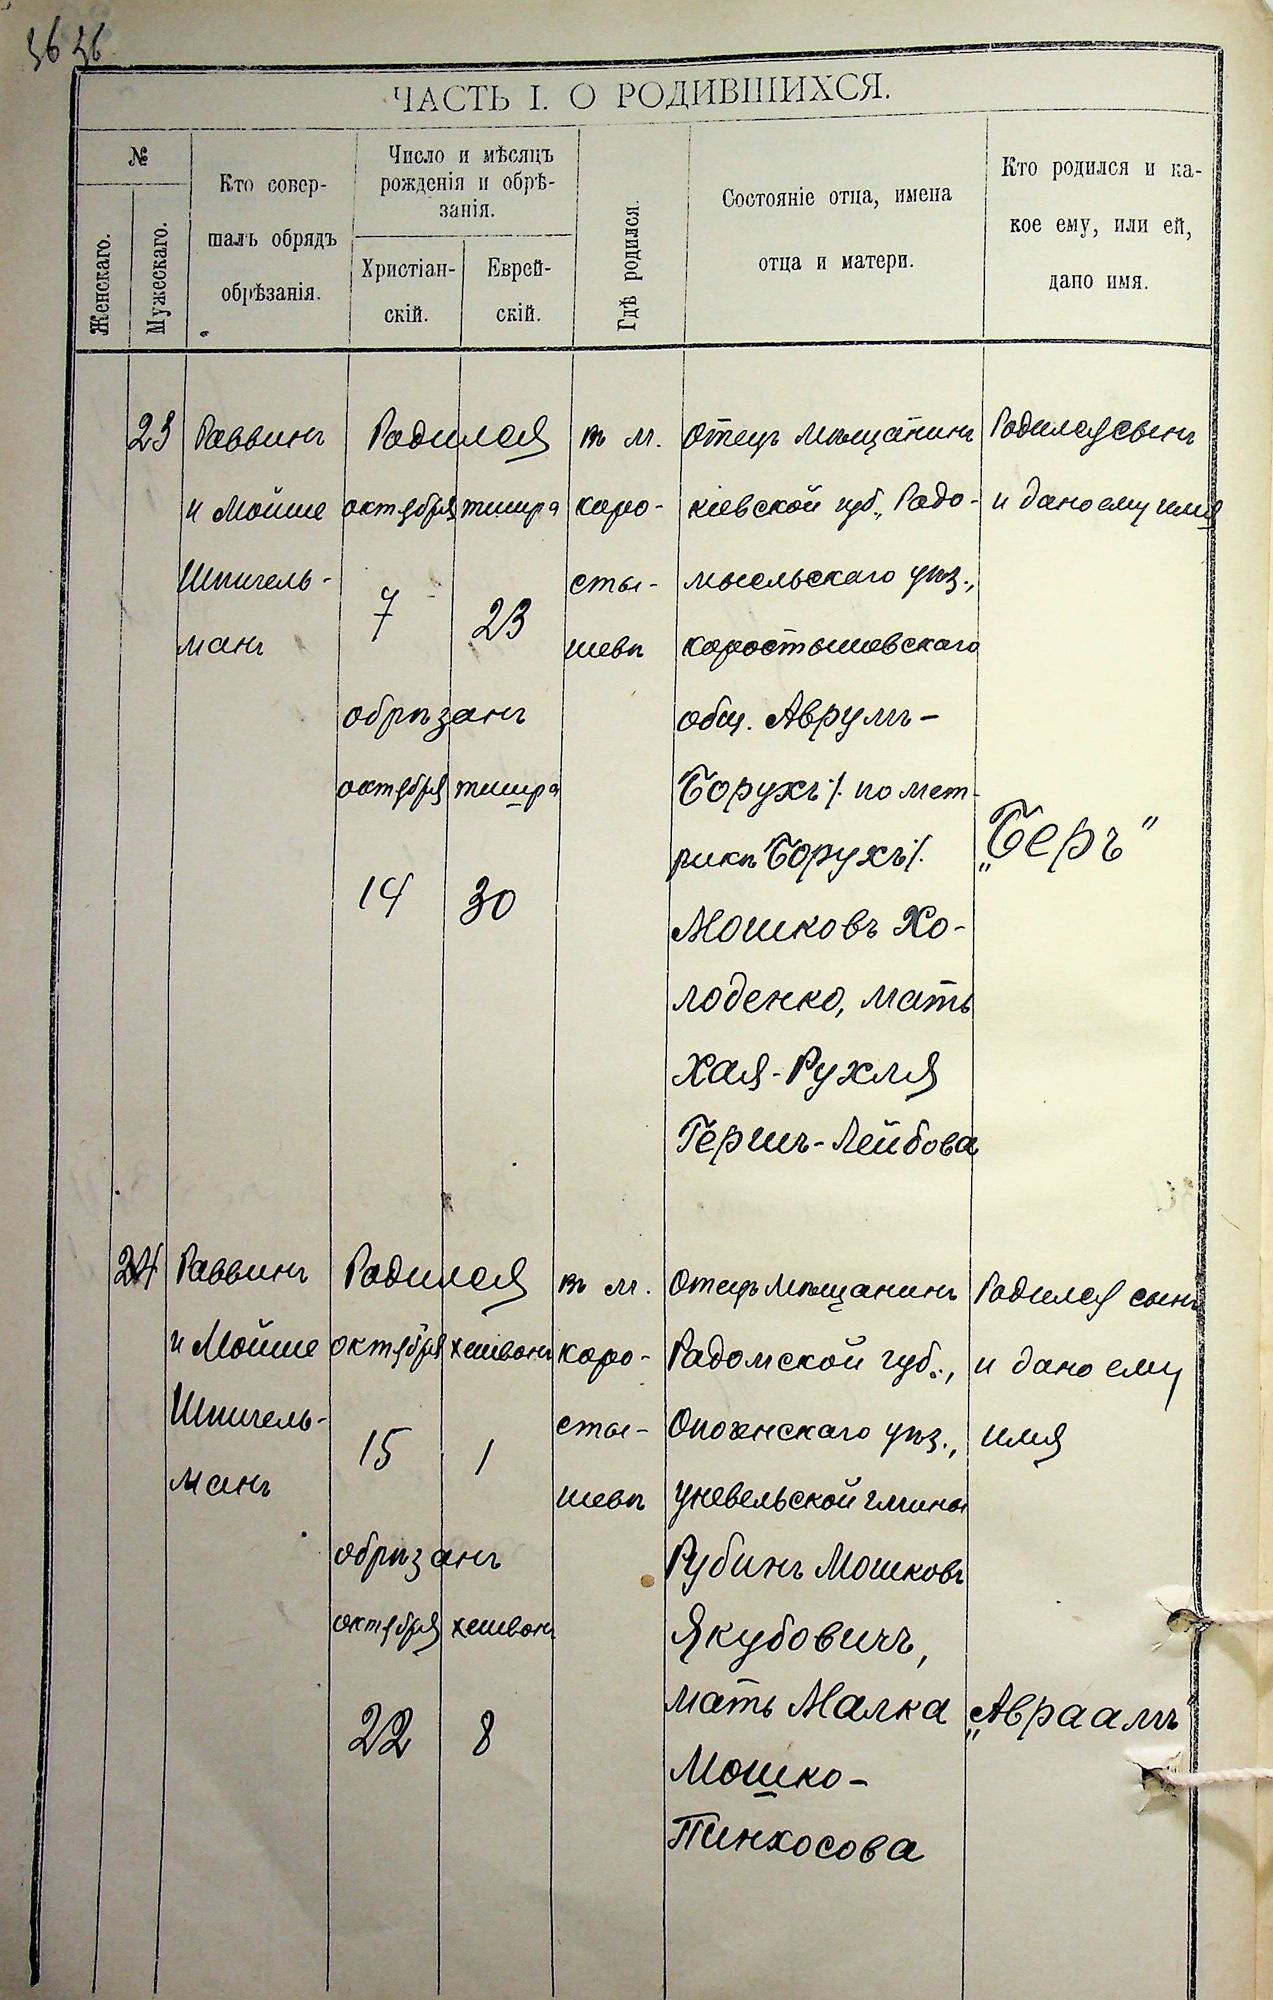 36 36
ЧАСТЬ I. О РОДИВШИХСЯ.
№
Женскаго.
Мужескаго.
Кто совер-
шалъ обрядъ
обрѣзанія.
Число и мѣсяцъ
рожденія и обрѣ-
занія.
Христіан-
скій.
Еврей-
скій.
Гдѣ родился.
Состояніе отца, имена
отца и матери.
Кто родился и ка-
кое ему, или ей,
дано имя.
23
Раввинъ
и Мойше
Шпигель-
манъ
Родился
октября тишра
7 23
обрѣзанъ
октября тишра
14 30
въ м.
Коро-
сты-
шевѣ
Отецъ мѣщанинъ
Кіевской губ., Радо-
мысльскаго уѣз.,
Коростышевскаго
общ. Аврумъ-
Борухъ /. по мет-
рикѣ Борухъ /.
Мошковъ Хо-
лоденко, мать
Хая-Рухля
Гершъ-Лейбова
Родился сынъ
и дано ему имя
„Беръ"
24
Раввинъ
и Мойше
Шпигель-
манъ
Родился
октября хешвонъ
15 1
обрѣзанъ
октября хешвонъ
22 8
въ м.
Коро-
сты-
шевѣ
Отецъ мѣщанинъ
Радомской губ.,
уѣз.,
гмины
Рубинъ Мошковъ
Якубовичъ,
мать Малка
Мошко-
Пинхосова
Родился сынъ
и дано ему
имя
„Авраамъ"